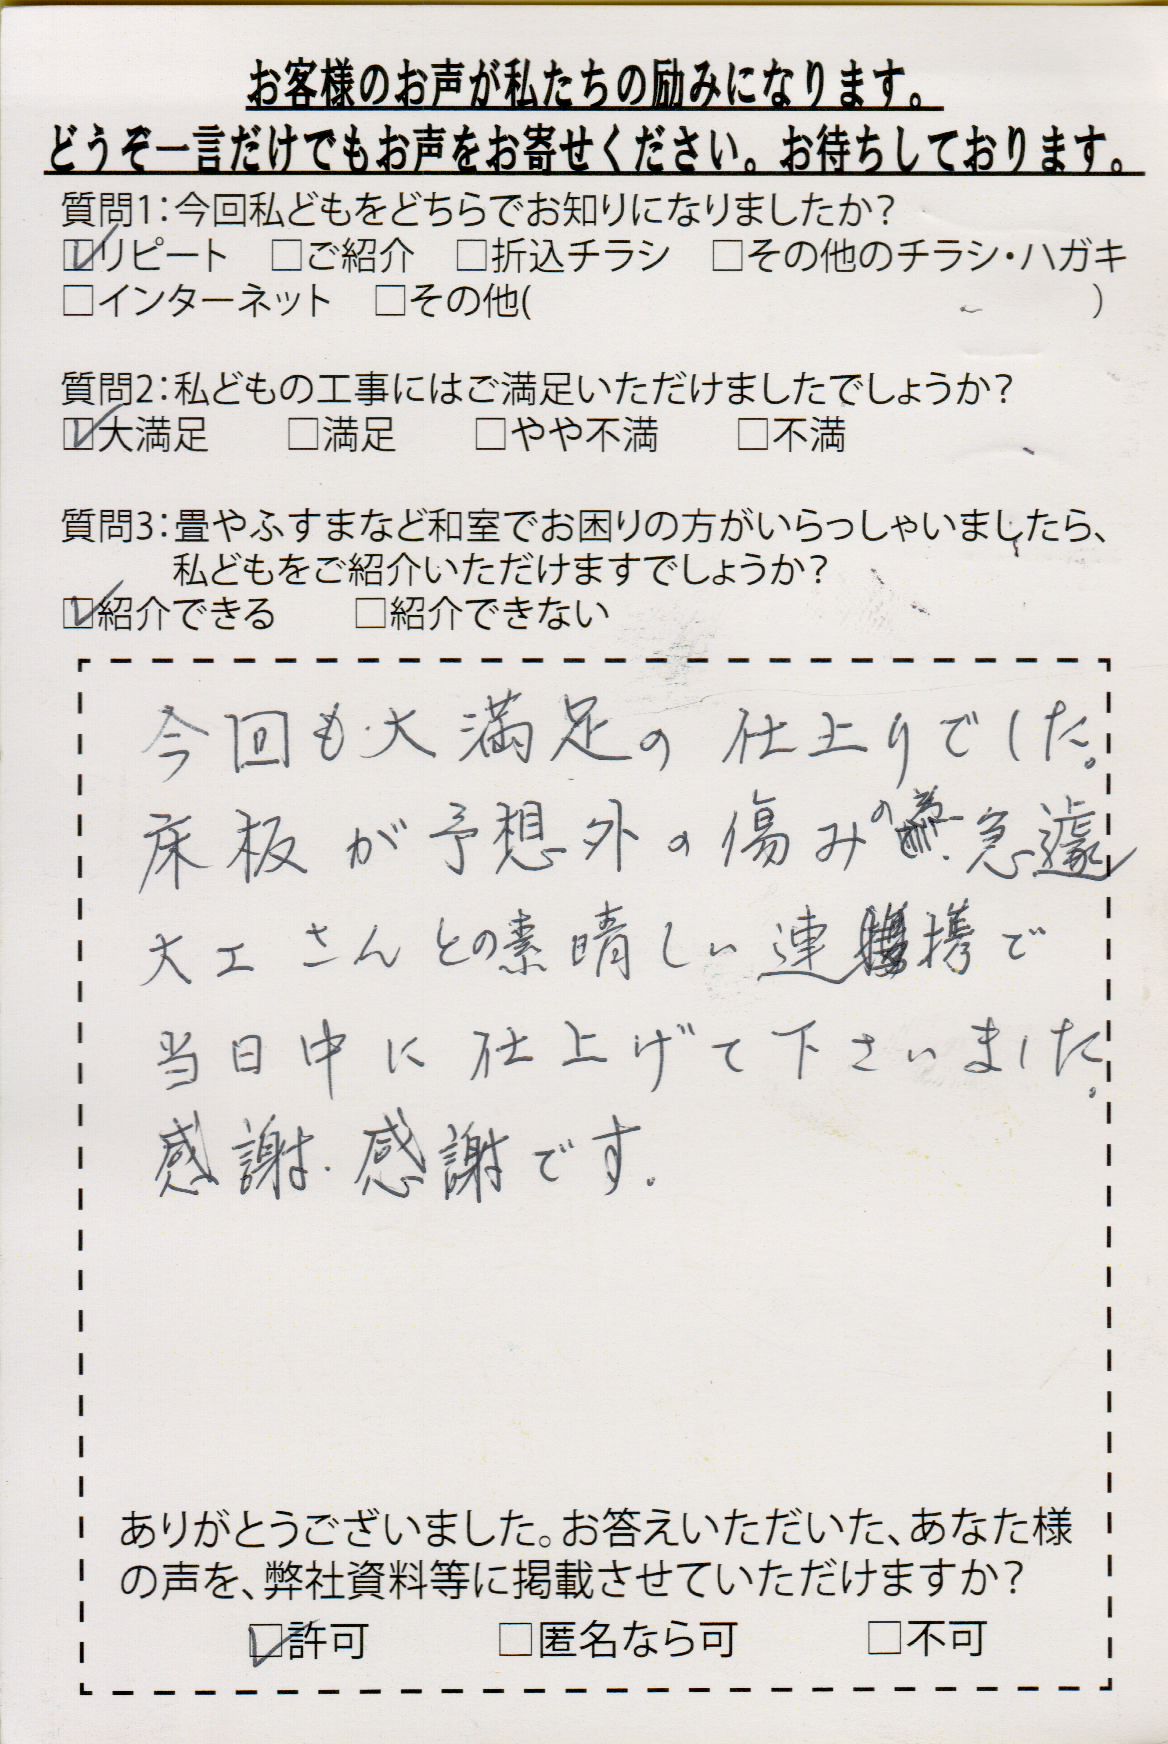 お客様のお声が私たちの励みになります。
どうぞ一言だけでもお声をお寄せください。お待ちしております。
質問1：今回私どもをどちらでお知りになりましたか？
☑リピート　□ご紹介　□折込チラシ　□その他のチラシ・ハガキ
□インターネット　□その他(　　　　　)
質問2：私どもの工事にはご満足いただけましたでしょうか？
☑大満足　□満足　□やや不満　□不満
質問3：畳やふすまなど和室でお困りの方がいらっしゃいましたら、
私どもをご紹介いただけますでしょうか？
☑紹介できる　□紹介できない
今回も大満足の仕上りでした。
床板が予想外の傷みの為急遽
大工さんとの素晴しい連携で
当日中に仕上げて下さいました。
感謝.感謝です.
ありがとうございました。お答えいただいた、あなた様
の声を、弊社資料等に掲載させていただけますか？
☑許可　□匿名なら可　□不可